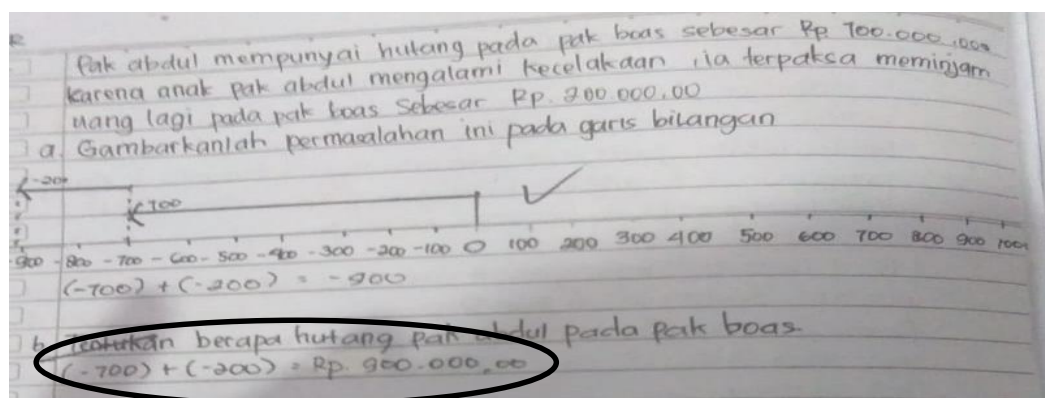 Pak abdul mempunyai hutang pada pak boas sebesar Rp 700.000,00
karena anak pak abdul mengalami kecelakaan ,ia terpaksa meminjam
uang lagi pada pak boas sebesar Rp. 200.000,00
a. Gambarkanlah permasalahan ini pada garis bilangan
-200
700
-900 -800 -700 -600 -500 -400 -300 -200 -100 0 100 200 300 400 500 600 700 800 900 1000
(-700) + (-200) = -900
b. Tentukan berapa hutang pak abdul pada pak boas.
(-700) + (-200) = Rp. 900.000,00